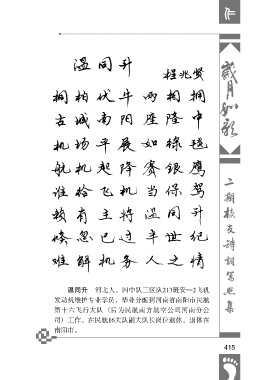 温同升
程兆贤
桐柏伏牛两相拥
古城南阳座隆中
机场平展如绿毯
航机起降赛银鹰
谁给飞机当保驾
赖有主将温同升
倏忽已过半世纪
难解机务人之情
温同升　河北人，四中队三区队213班安—2飞机
发动机维护专业学员，毕业分配到河南省南阳市民航
第十六飞行大队（后为民航南方航空公司河南分公
司）工作。在民航16大队副大队长岗位退休。退休在
南阳市。
岁月如歌
二期校友诗词写照集
415